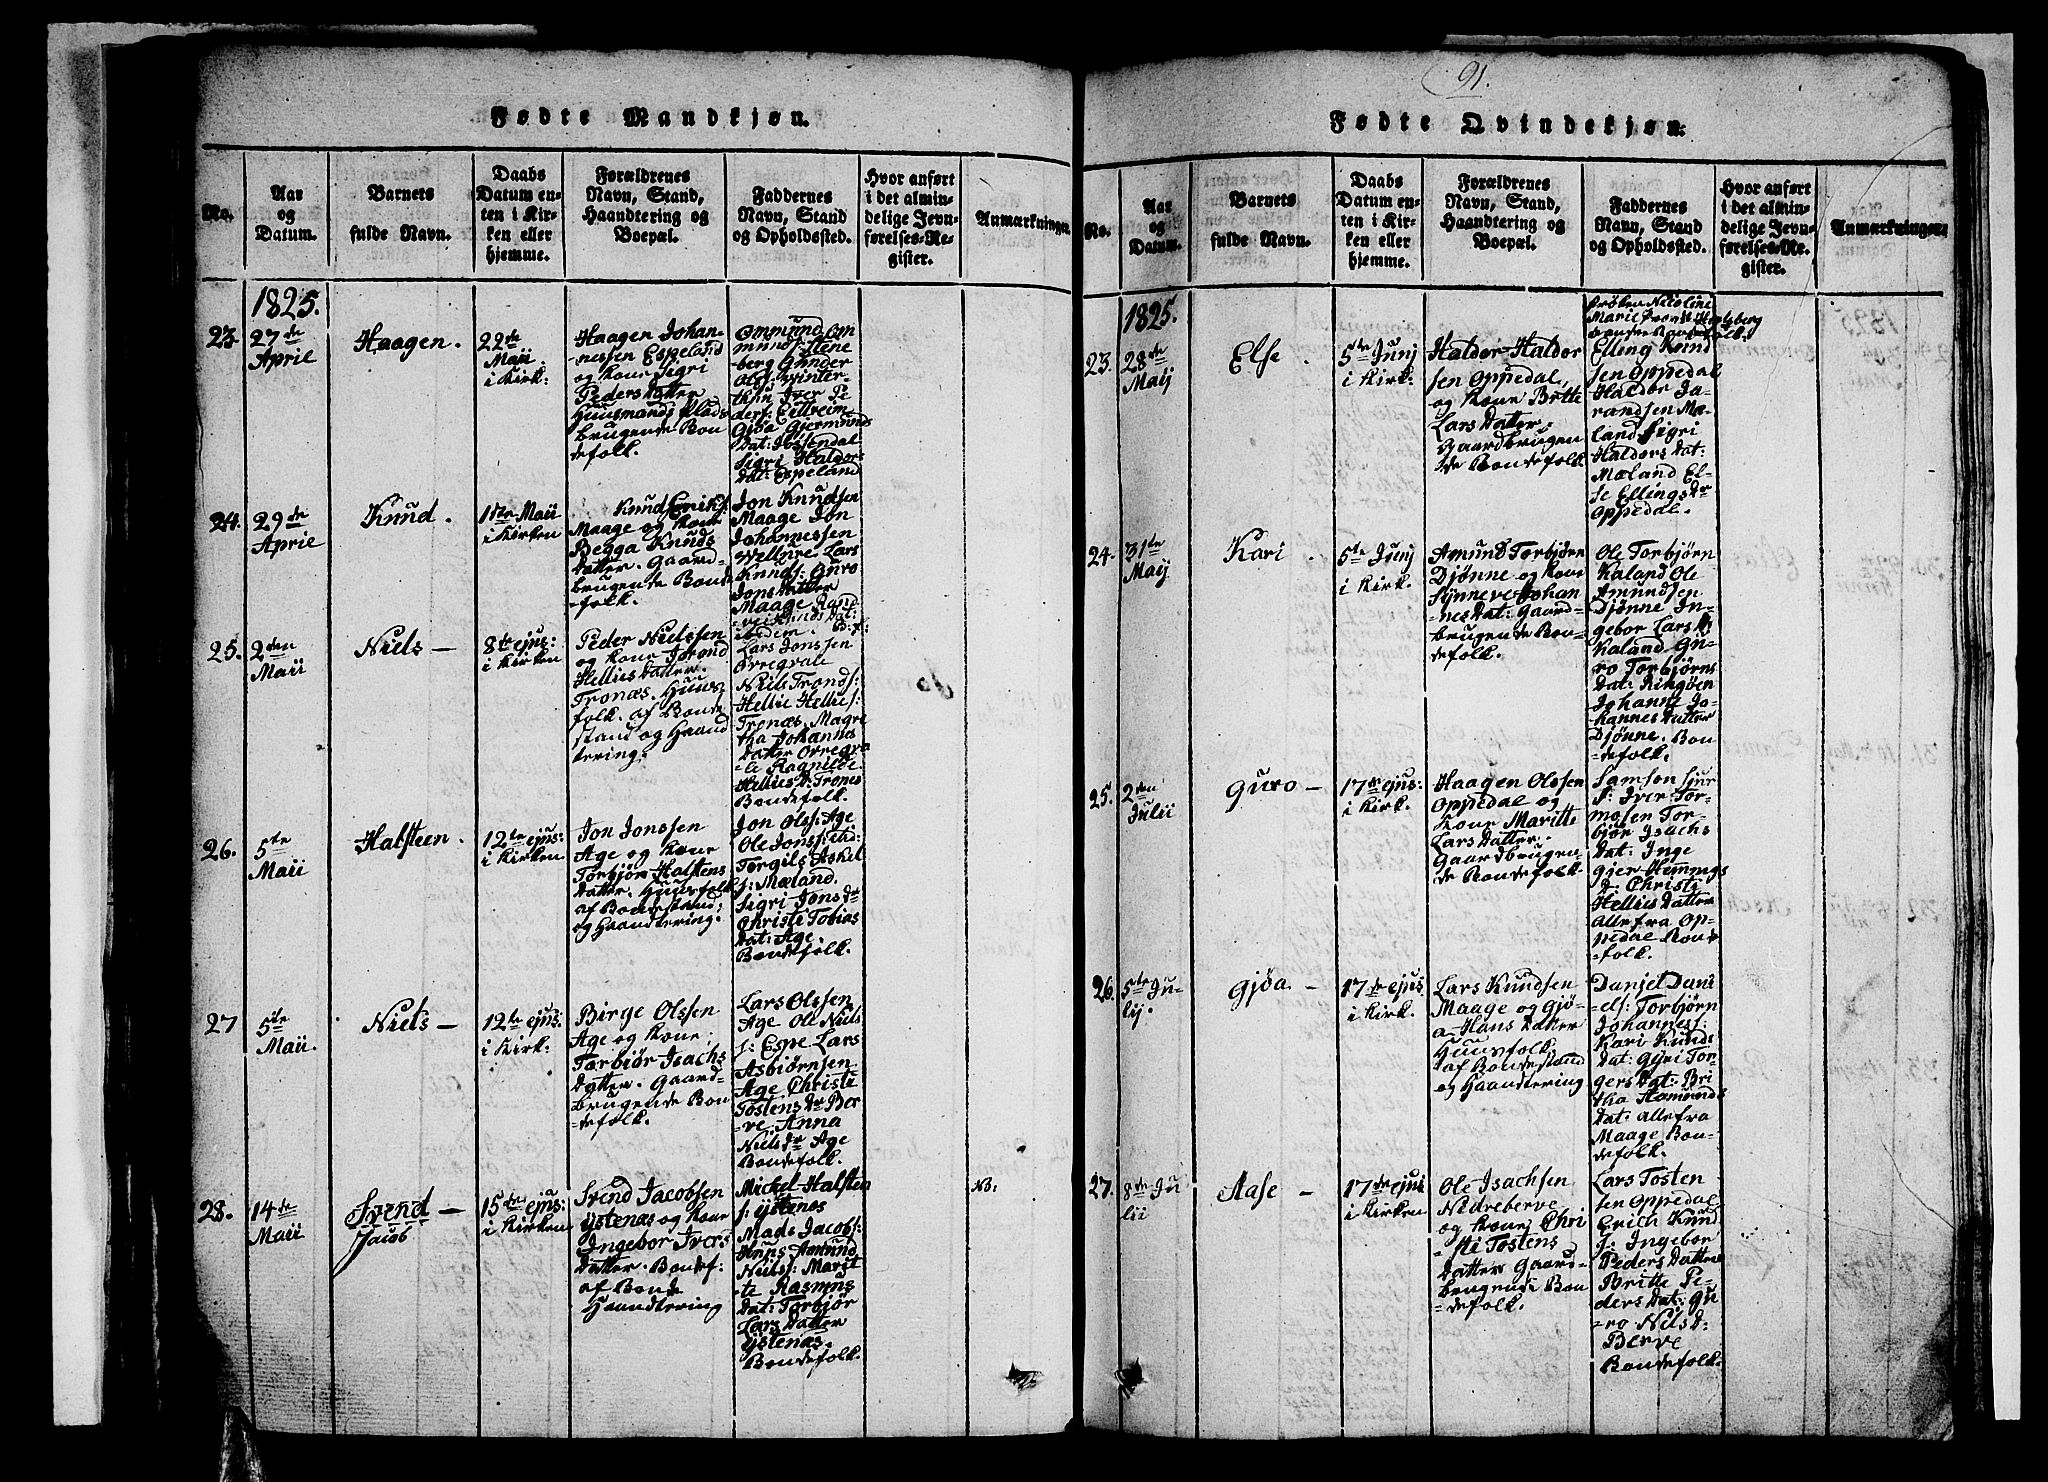 91.
Fødte Mandkjøn.
No.
Aar
og
Datum.
Barnets
fulde Navn.
Daabs
Datum en-
ten i Kir-
ken eller
hjemme.
Forældrenes
Navn, Stand,
Haandtering og
Boepæl.
Faddernes
Navn, Stand
og Opholdssted.
Hvor anført
i det almin-
delige Jevn-
førelses-Re-
gister.
Anmærkninger.
1825.
23.
27de
April
Haagen.
22de
Maii.
i Kirk:
Haagen Johan-
nessen Espeland
og Kone Sigri
Peders Datter
Huusmands Plads
brugende Bon
defolk.
Ommund Om
munds:
berg Gunder
Ols: Winter-
thun Iver Pe
ders: Eittreim
Gjøa Gjermunds
Dat: Jøssendal
Sigri Haldors
Dat: Espeland
24.
29de
Aprie
Knud.
1ste Maii
i Kirken
Knud Eriks:
Maage og Kone
Begga Knuds
Datter. Gaard-
brugende Bond
-folk.
Jon Knudsen
Maage Jon
Johannessen
Lars
Knuds: Guro
Jons Datter
Maage Rand
vei Knuds Dat:
ibidem. B: f:
25.
2den
Maii
Niels —
8de ejus:
i Kirken
Peder Nielssen
og Kone Jorond
Hellies Datter.
Tronæs. Huus
folk. af Bonde
stand og Haand
tering.
Lars Jonssen
Orregvale
Niels Tronds:
Hellie Hellies:
Tronæs. Magre
tha Johannes
Datter Orregva
-le Ragnilde
Hellies D: Trones
Bondefolk.
26.
5te
Maii
Halsteen.
12te ejus:
i Kirken
Jon Jonssen
Age og Kone
Torbjør Halstens
Datter. Huusfolk
af Bondestand;
og Haandtering.
Jon Ols: Age
Ole Jons: Ibid:
Torgils Askel
s: Mæland.
Sigri Jons Dr
Christi Tobias
Dat: Age
Bondefolk.
27
5te
Maii.
Niels —
12te ejus:
i Kirk:
Birge Olssen
Age og Kone;
Torbiør Isachs
Datter. Gaard-
brugende Bon
-defolk.
Lars Olssen
Age Ole Niels
s: Espe Lars
Asbjørnsen
Age Christi
Tostens Dr Ber
-ve. Anna
Niels Dr Age
Bondefolk.
28.
14de
Maii
Svend —
Jacob
15de ejus:
i Kirken
Svend Jacobsen
Ystenæs og Kone
Ingebor Ivers
Datter. Bondef:
af Bonde
Haandtering
Michel Halsten
s: Ystenæs
Mads Jacobs:
Huus Amund
Niels: Marit
-te Rasmus
Dat: Torbjør
Lars Datter
Ystenæs.
Bondefolk.
NB:
Fødte Qvindekjøn.
No.
Aar
og
Datum.
Barnets
fulde Navn.
Daabs
Datum en-
ten i Kir-
ken eller
hjemme.
Forældrenes
Navn, Stand,
Haandtering og
Boepæl.
Faddernes
Navn, Stand
og Opholdssted.
Hvor anført
i det almin-
delige Jevn-
førelses-Re-
gister.
Anmærkninger.
1825.
23.
28de
Maij
Else.
5te Junj
i Kirk:
Haldor Haldor
sen Oppedal,
og Kone Britte
Lars Datter.
Gaardbrugen
de Bondefolk
Frøken Nicoline
Marie
Elling Knud
sen Oppedal
Haldor Ja-
randsen Mæ-
land Sigri
Haldors Dat:
Mæland El-
se Ellings Dr
Oppedal.
24.
31te
Maij
Kari.
5te Junj
i Kirk.
Amund Torbjørn
Djønne og Kone
Synneve Johan
nes Dat: Gaard-
brugende Bon-
defolk.
Ole Torbjørn
Kaland Ole
Amundsen
Djønne In-
gebor Lars D:
Kaland Gu-
ro Torbjørns
Dat: Ringøen
Johanne Jo-
hannes Datter
Djønne. Bon-
defolk.
25.
2den
Julii
Guro —
17de ejus:
i Kirk.
Haagen Olssen
Oppedal og
Kone Maritte
Lars Datter.
Gaardbrugen-
de Bondefolk.
Samson Sjur
s: Iver Tor-
mosen Tor-
bjør Isachs
Dat: Inge
gjer Hemings
D. Christi
Hellies Datter
alle fra Op-
pedal Bonde
-folk.
26.
5te Ju-
lij.
Gjøa —
17de ejus
i Kirk.
Lars Knudsen
Maage og Gjø-
a Hans Datter
Huusfolk
af Bondestand
og Haandtering
Danjel Dani
els: Torbjørn
Johannes:
Kari Knuds
Dat: Gyri Tor-
gers Dat: Bri
tha Aamunds
Dat: alle fra
Maage Bon-
defolk.
27.
8de Ju
lii
Aase —
17de ejus
i Kirken
Ole Isachsen
Nedreberve
og Kone Chri
-sti Tostens
Datter Gaard-
brugende Bon
-defolk.
Lars Tosten
sen Oppedal
Erich Knud
s. Ingebor
Peders Datter
Britte Pe-
ders Dat: Gu
-ro Niels D:
Berve
Bondefolk.